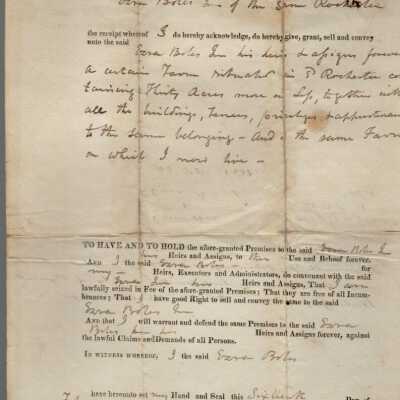 Ezra Boles Jr of the same Rochester
the receipt whereof I do hereby acknowledge, do hereby give, grant, sell and convey
unto the said
Ezra Boles Jr his heirs & assigns forever
a certain Farm situated in Rochester con
taining Thirty Acres more or Less, together with
all the buildings, privileges & appurtenances
to the same belonging - And is the same Farm
on which I now live -
TO HAVE AND TO HOLD the afore-granted Premises to the said Ezra Boles Jr
his Heirs and Assigns, to their Use and Behoof forever.
And I the said Ezra Boles - for
my - Heirs, Executors and Administrators, do convenant with the said
Ezra Jr his Heirs and Assigns, That I am
lawfully seized in Fee of the afore-granted Premises; That they are free of all Incum-
brances; That I have good Right to sell and convey the same to the said
Ezra Boles Jr
And that I will warrant and defend the same Premises to the said Ezra
Boles Jr his Heirs and Assigns forever, against
the lawful Claims and Demands of all Persons.
IN WITNESS WHEREOF, I the said Ezra Boles
have hereunto set my Hand and Seal this Sixteenth Day of